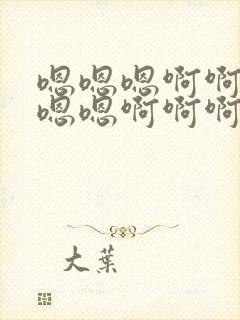 嗯嗯嗯啊啊
嗯嗯啊啊啊
大葉